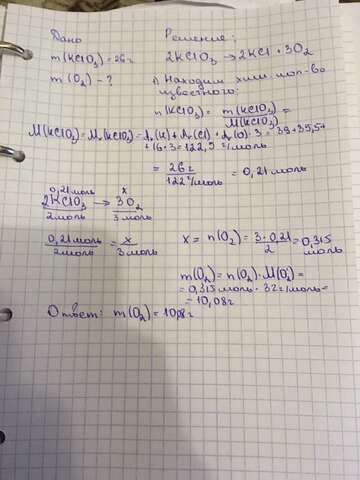 Дано
Решение:
m(KClO3)=26г
2KClO3 → 2KCl + 3O2
m(O2) - ?
1) Находим хим. кол-во
известного:
n(KClO3) = m(KClO3) / M(KClO3) =
M(KClO3) = Mr(KClO3) = Ar(K) + Ar(Cl) + Ar(O)·3 = 39+35,5+
+16·3 = 122,5 г/моль
= 26г / 122г/моль = 0,21 моль
0,21 моль x
2KClO3 → 3O2
2моль 3 моль
0,21 моль / 2моль = x / 3 моль
x = n(O2) = 3·0,21 / 2 = 0,315
моль
m(O2) = n(O2)·M(O2) =
= 0,315 моль · 32 г/моль =
= 10,08 г
Ответ: m(O2) = 10,08г